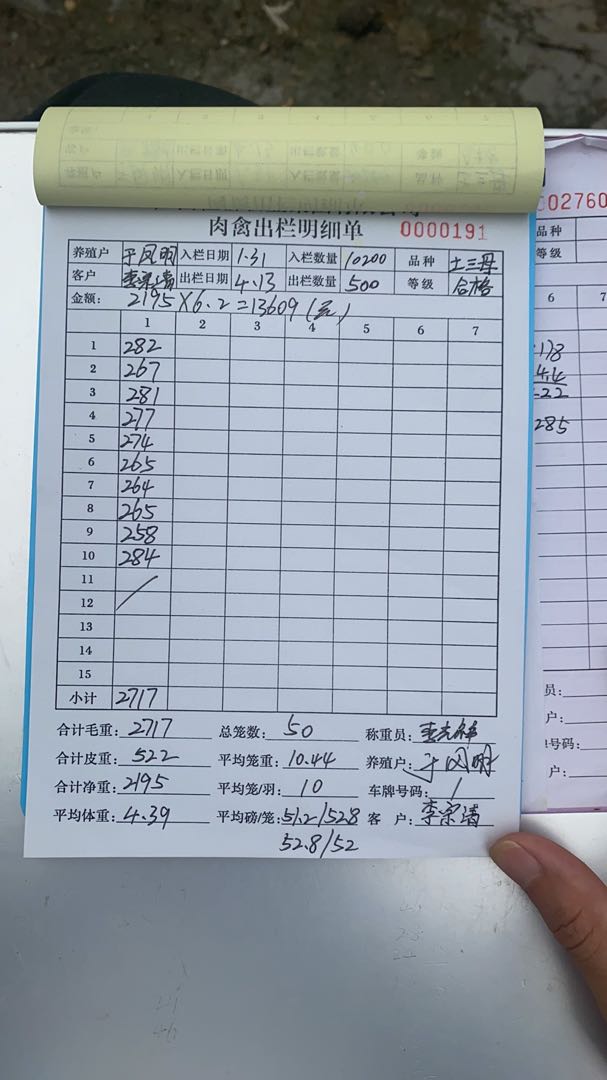 肉禽出栏明细单 0000191
养殖户 于凤明 入栏日期 1.31 入栏数量 10200 品种 土三母
客户 出栏日期 4.13 出栏数量 500 等级 合格
金额: 2195×6.2=13609(元)
1 2 3 4 5 6 7
1 282
2 267
3 281
4 277
5 274
6 265
7 264
8 265
9 258
10 284
11
12
13
14
15
小计 2717
合计毛重: 2717 总笼数: 50 称重员:
合计皮重: 522 平均笼重: 10.44 养殖户: 于凤明
合计净重: 2195 平均笼/羽: 10 车牌号码: 1
平均体重: 4.39 平均磅/笼: 51.2/52.8 客户:
52.8/52
02760
品种
等级
6 7
178
4.4
22
285
员:
户:
号码:
户: